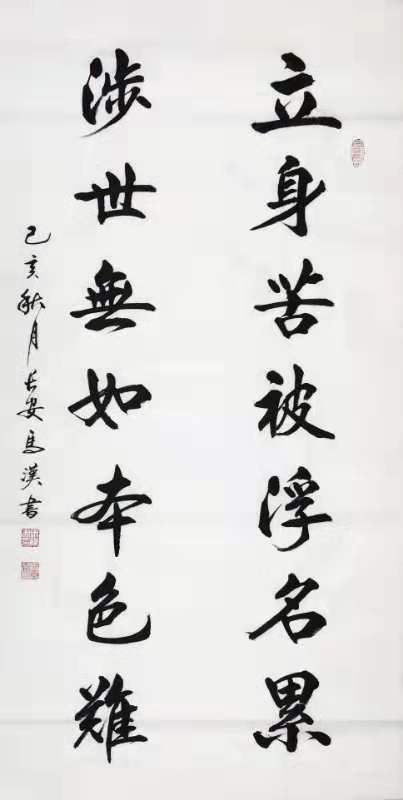 立身苦被浮名累
涉世無如本色難
己亥秋月長安馬漢書